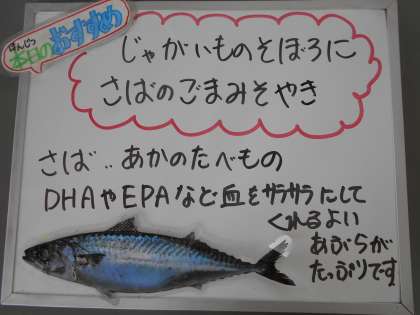 ほんじつ
本日のおすすめ
じゃがいものそぼろに
さばのごまみそやき
さば‥あかのたべもの
DHAやEPAなど血をサラサラにして
くれるよい
あぶらが
たっぷりです